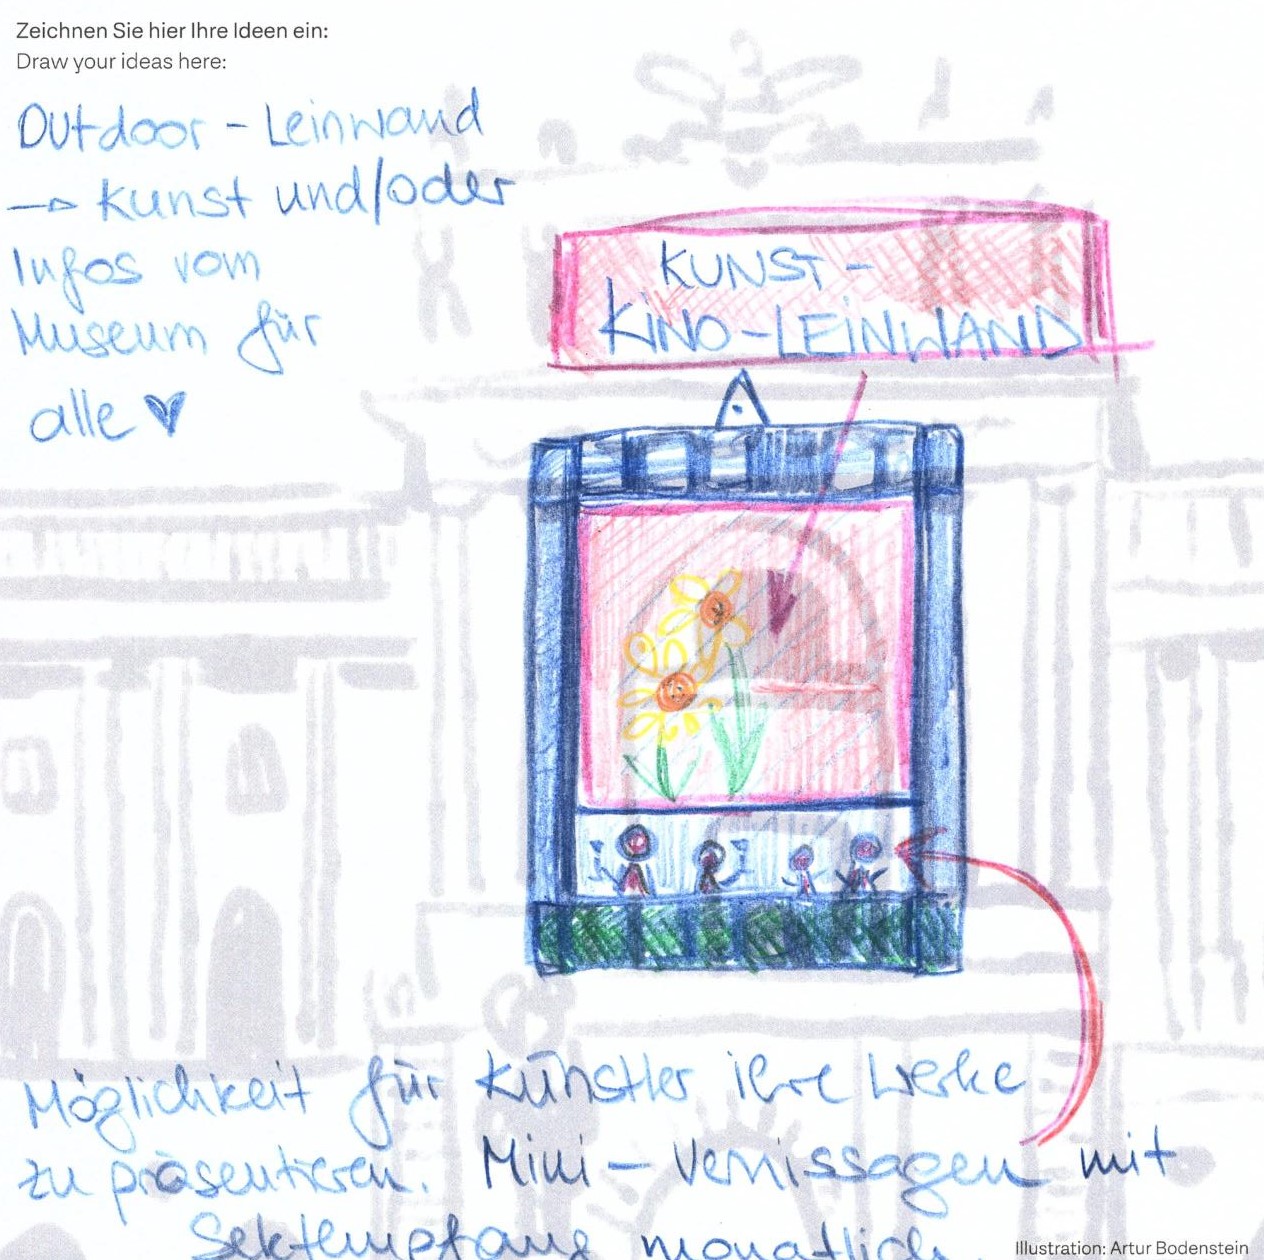 Zeichnen Sie hier Ihre Ideen ein:
Draw your ideas here:
Outdoor - Leinwand
→ Kunst und/oder
Infos vom
Museum für
alle ♥
KUNST -
KINO-LEINWAND
Möglichkeit für Künstler ihre Werke
zu präsentieren. Mini - Vernissagen mit
Sektempfang monatlich.
Illustration: Artur Bodenstein